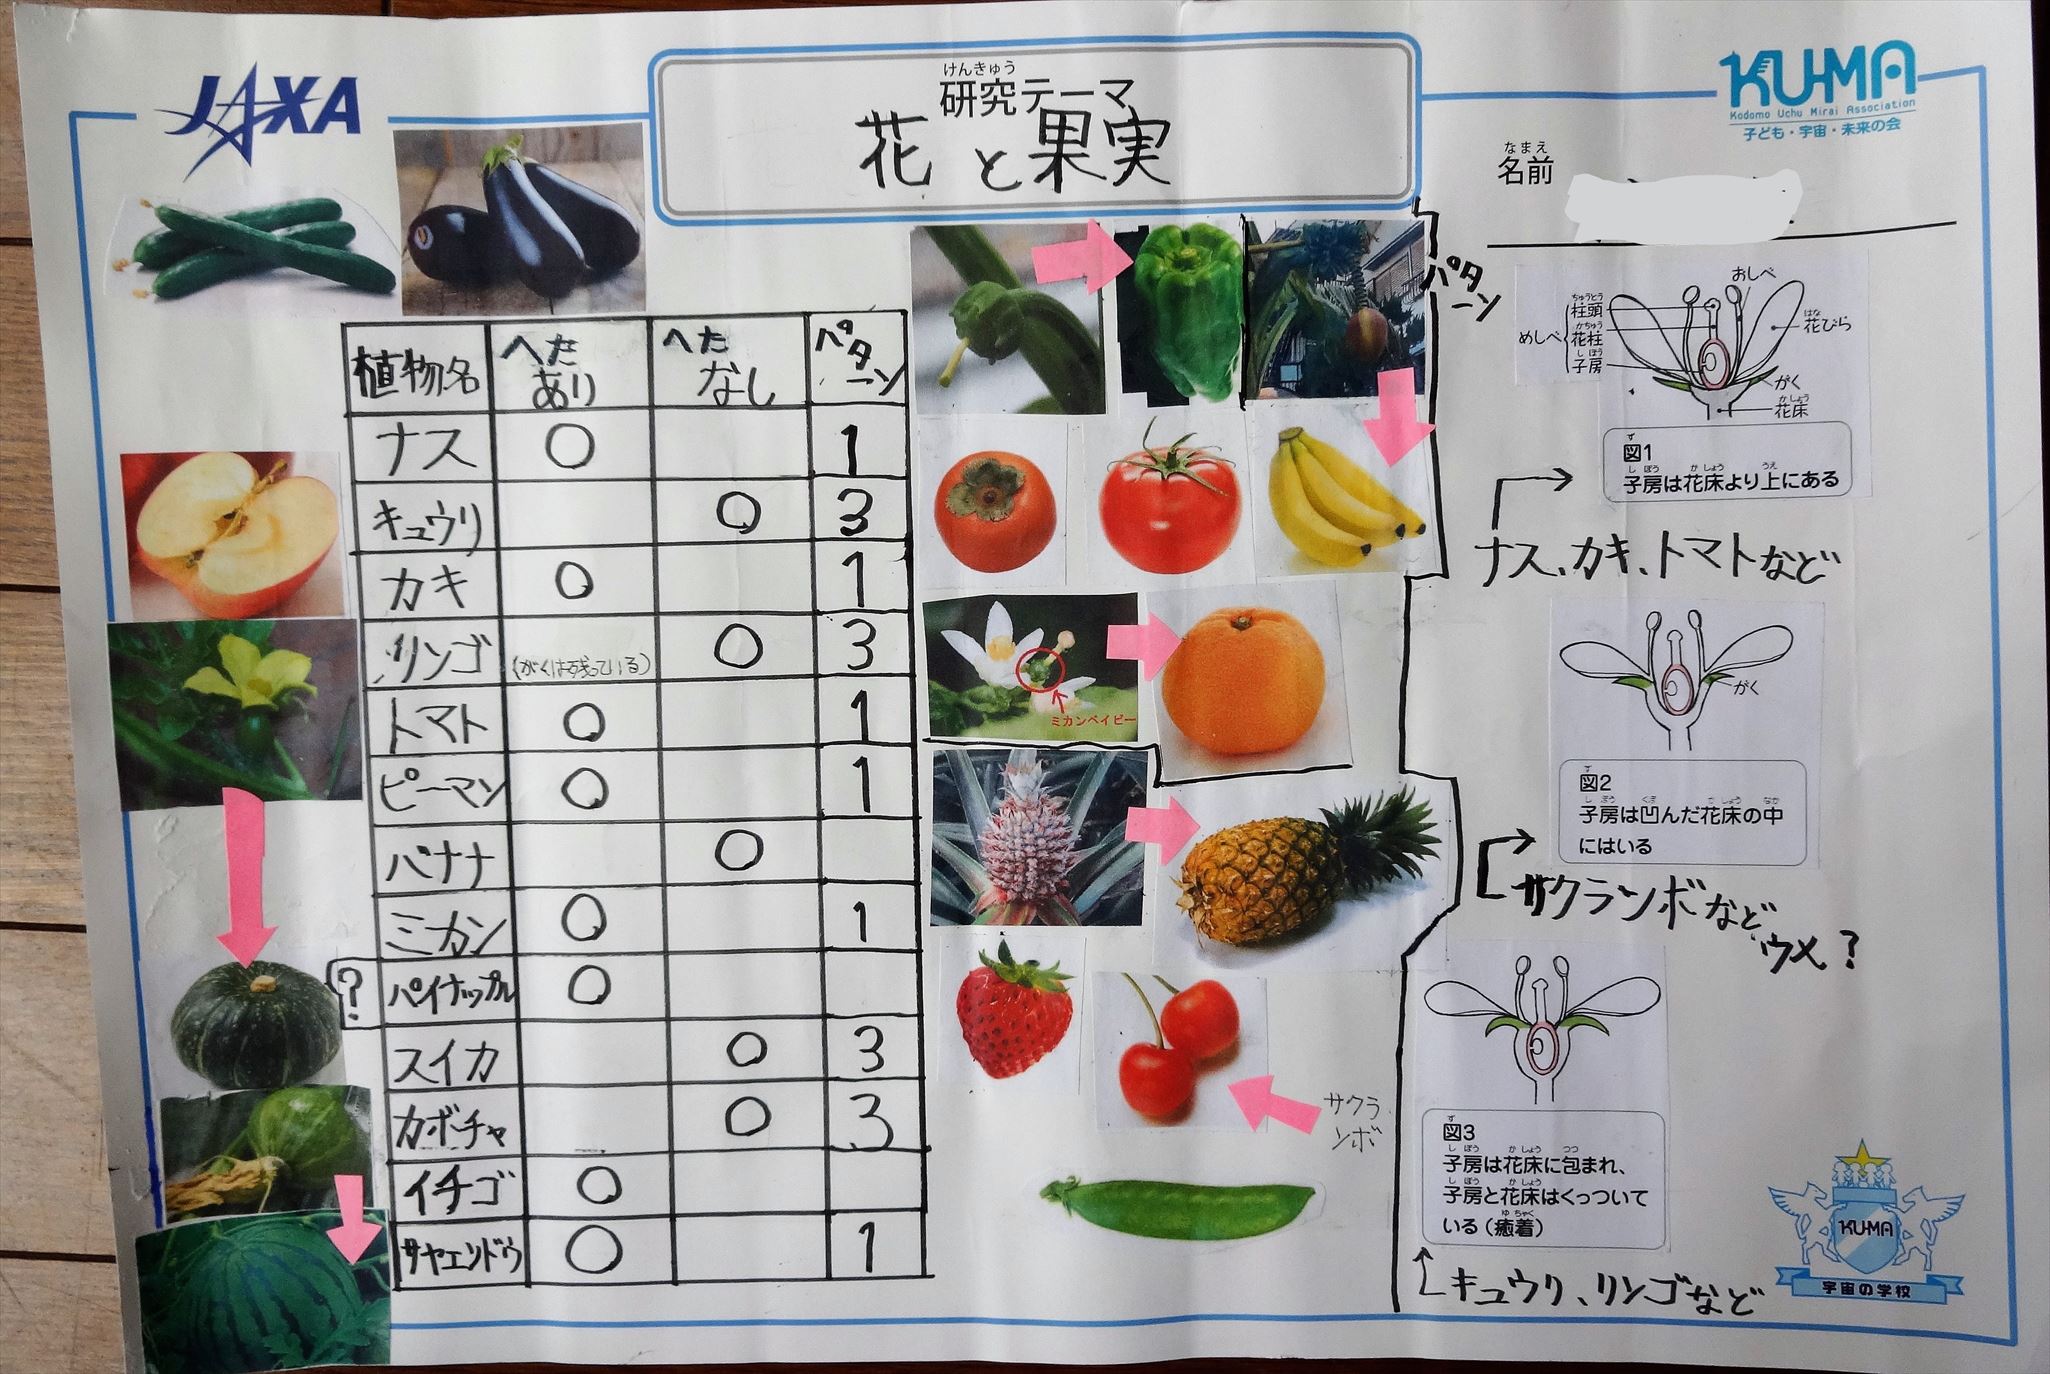 JAXA
けんきゅう
研究テーマ
花と果実
KU-MA
Kodomo Uchu Mirai Association
子ども・宇宙・未来の会
なまえ
名前
植物名 へたあり へたなし パターン
ナス ○ 1
キュウリ ○ 3
カキ ○ 1
リンゴ (がくは残っている) ○ 3
トマト ○ 1
ピーマン ○ 1
バナナ ○
ミカン ○ 1
? パイナップル ○
スイカ ○ 3
カボチャ ○ 3
イチゴ ○
サヤエンドウ ○ 1
ミカンベイビー
サクラ
ンボ
パターン
おしべ
めしべ
ちゅうとう
柱頭
かちゅう
花柱
しぼう
子房
はな
花びら
がく
かしょう
花床
ず
図1
しぼう かしょう うえ
子房は花床より上にある
ナス、カキ、トマトなど
がく
ず
図2
しぼう くぼ かしょう なか
子房は凹んだ花床の中
にはいる
サクランボなど
ウメ?
ず
図3
しぼう かしょう つつ
子房は花床に包まれ、
しぼう かしょう
子房と花床はくっついて
ゆちゃく
いる(癒着)
キュウリ、リンゴなど
KU-MA
宇宙の学校